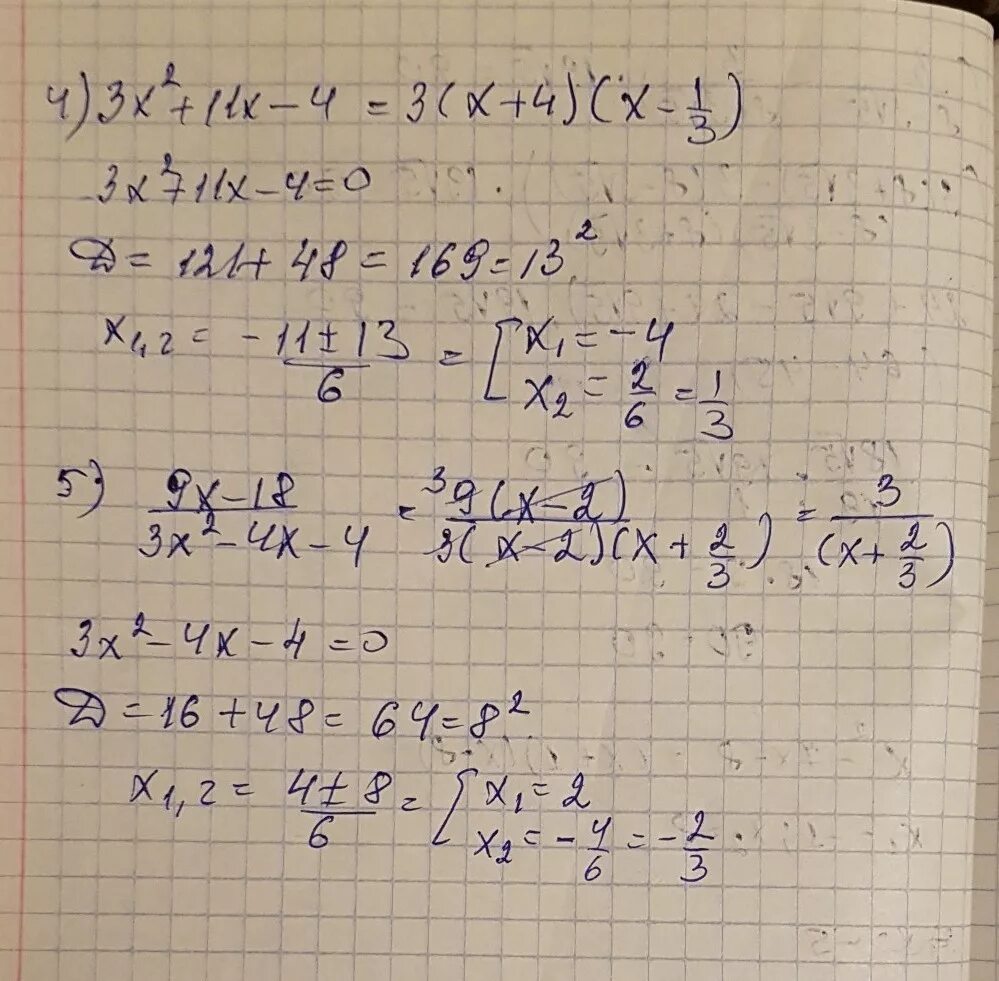 4) 3x² + 11x - 4 = 3(x + 4)(x - 1/3)
3x² + 11x - 4 = 0
D = 121 + 48 = 169 = 13²
x₁,₂ = (-11 ± 13)/6 = [ x₁ = -4
x₂ = 2/6 = 1/3
5) (9x - 18)/(3x² - 4x - 4) = ³9(x - 2)/3(x - 2)(x + 2/3) = 3/(x + 2/3)
3x² - 4x - 4 = 0
D = 16 + 48 = 64 = 8²
x₁,₂ = (4 ± 8)/6 = [ x₁ = 2
x₂ = -4/6 = -2/3